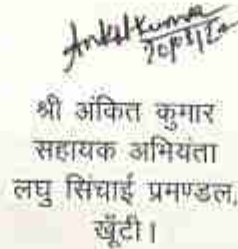 Ankit Kumar
श्री अंकित कुमार
सहायक अभियंता
लघु सिंचाई प्रमण्डल,
खूँटी।